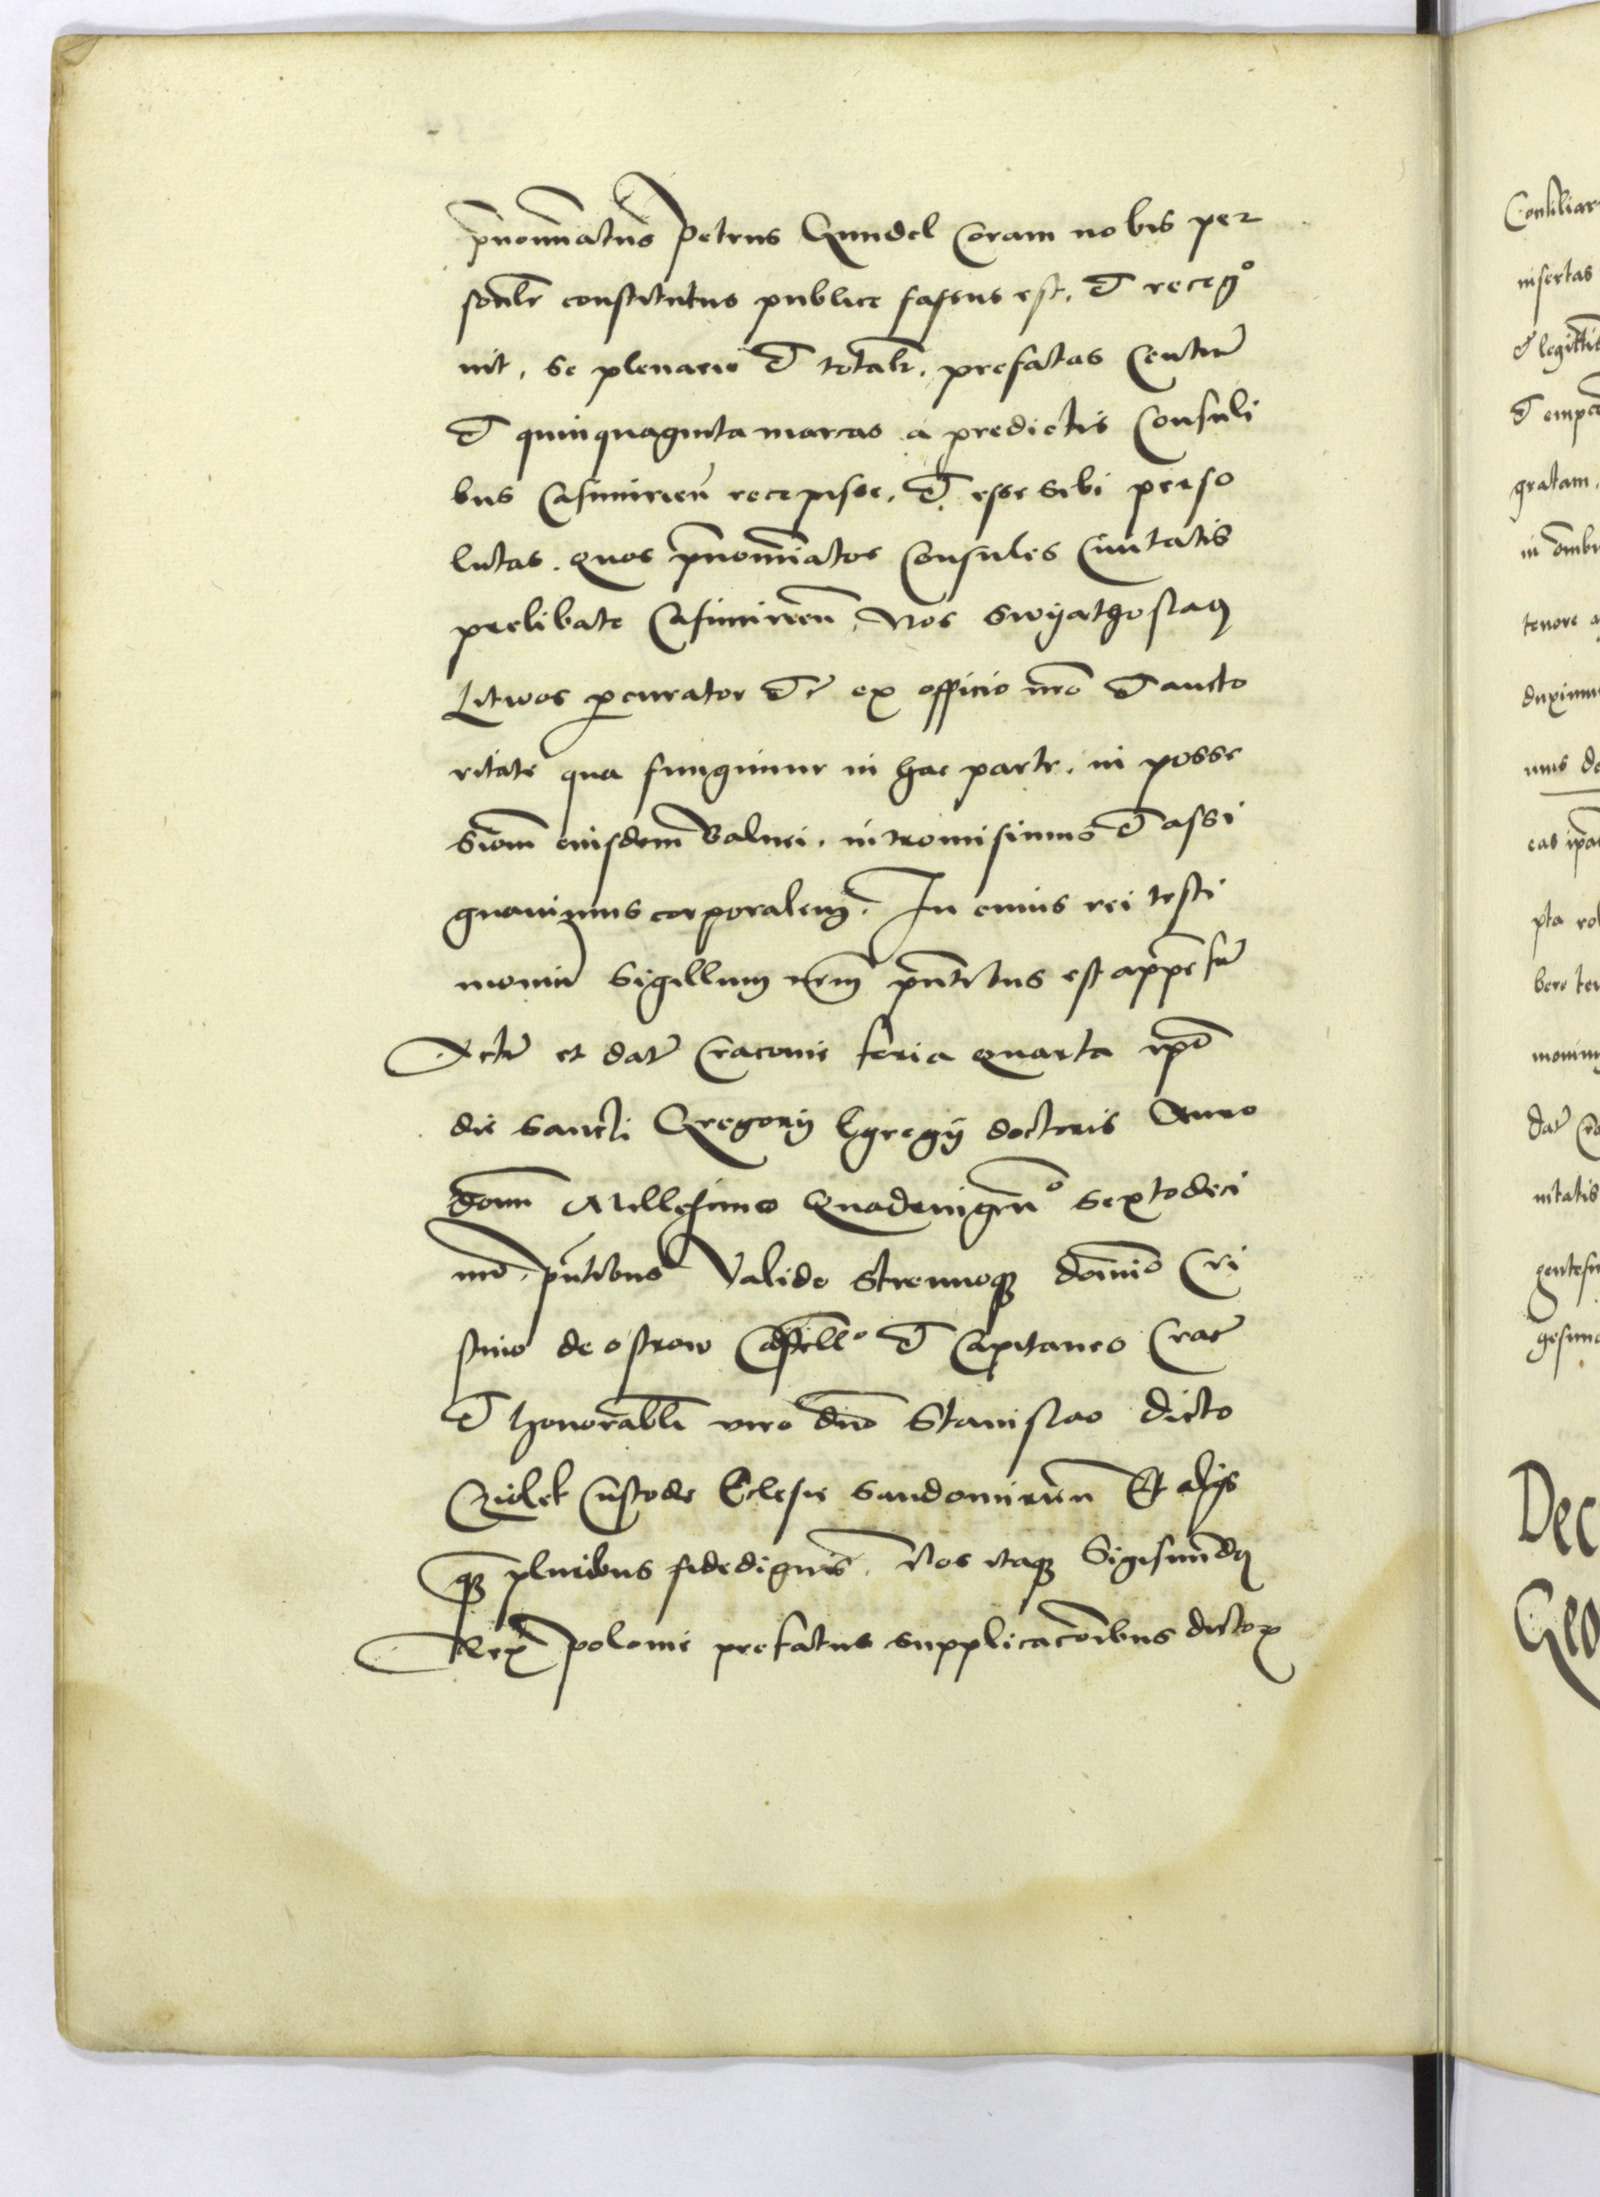 p̄nom̄natus Petrus Gundel Coram nobis per
sonlr̄ constitutus publice fassus est. et recog͛
uit. se plenarie et totalr̄. prefatas Centū
et quinquaginta marcas a predictis Consuli
bus Casimirieñ recepisse. et esse sibi perso
lutas. quos p̄nom̄iatos Consules Ciuitatis
prelibate Casimirieñ, Nos Swyathoslaꝯ
Litwos ꝓcurator etc̄ ex officio nr̄o et aucto
ritate qua fungimur in hac parte. in posse
sioēm eiusdem Balnei. intromisimus et assi
gnauimus corporalem. In cuius rei testi
moniū Sigillum nr̄m p̄ntibus est appensū
Actū et datū Cracouie feria quarta ip̄o
die sancti Gregorij Egregij doctoris Anno
dom̄ Millesimo Quadringen͛ Sextodeci
mo. p̄ntibus Valido Strenuoqꝫ domino Cri
stino de ostrow Castell° et Capitaneo Crac̄
et honorabli viro dn̄o Stanislao dicto
Custode Eclesie Sandomirieñ Et alijs
qꝫ pluribus fidedignis. Nos itaqꝫ Sigismūdꝯ
Rex polonie prefatus supplicac̄onibus dictoꝝ
Consiliar
insertas
et
gratam.
in
tenore
duximus
eas
pta
dat̄
Dec
Geo